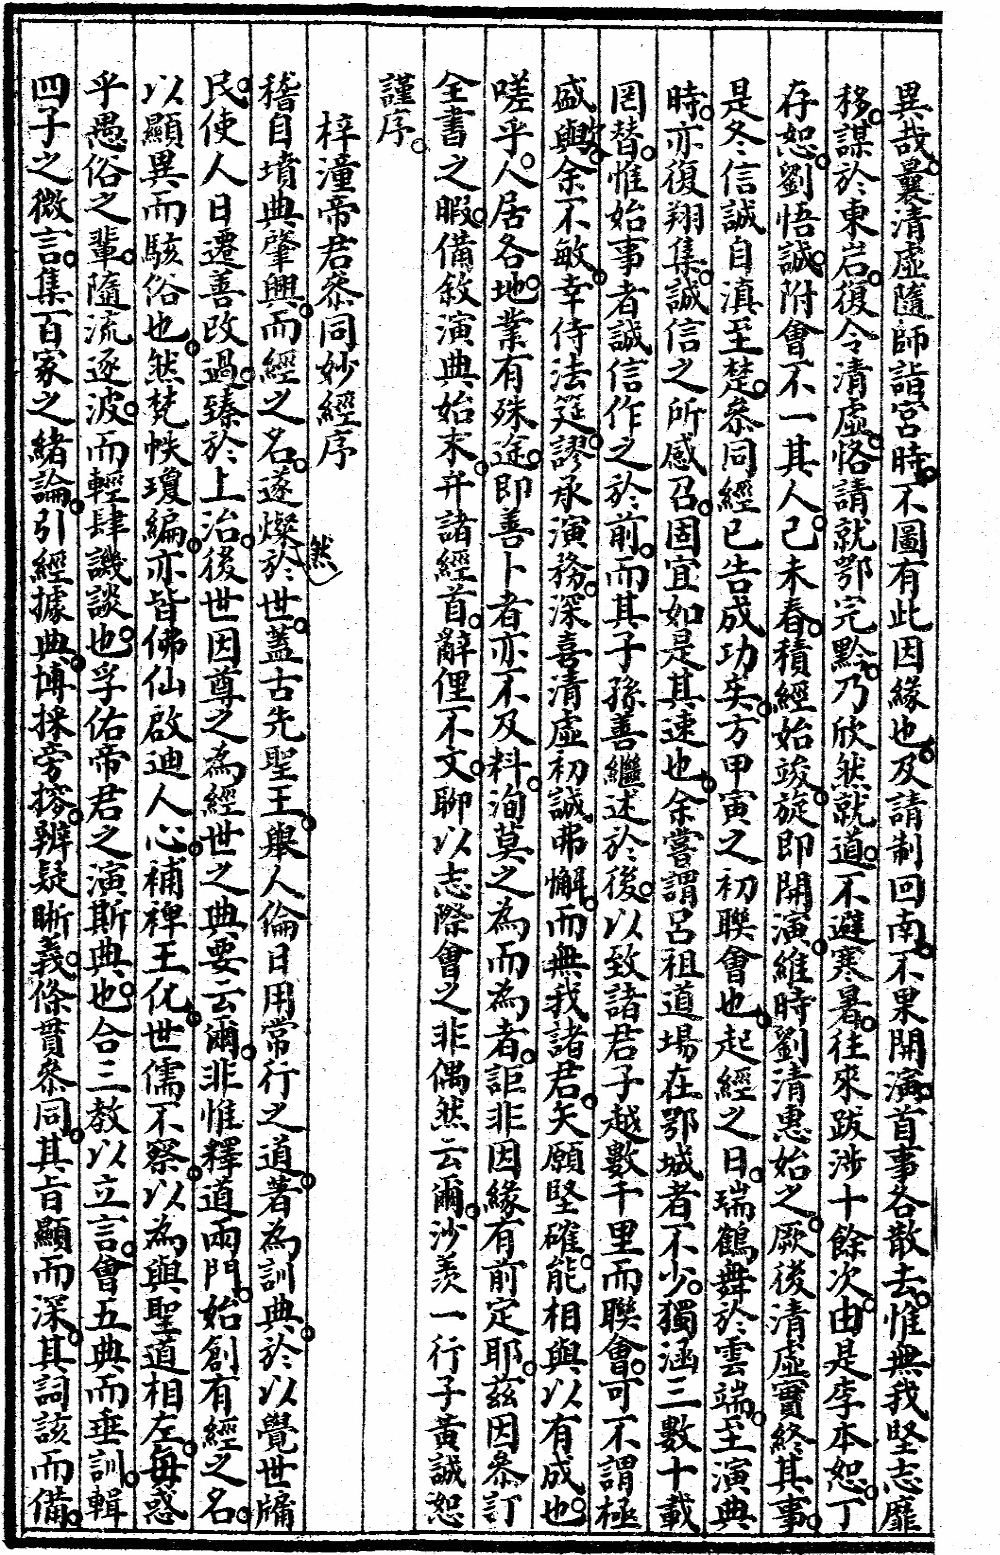 異哉。曩清虛隨師詣宮時。不圖有此因緣也。及請制回南。不果開演。首事各散去。惟無我堅志靡
移。謀於東岩。復令清虛恪請就鄂完黔。乃欣然就道。不避寒暑。往來跋涉十餘次。由是李本恕。丁
存恕。劉悟誠。附會不一其人。己未春。積經始竣。旋即開演。維時劉清惠始之。厥後清虛實終其事。
是冬信誠自滇至楚。叅同經已告成功矣。方甲寅之初聯會也。起經之日。瑞鶴舞於雲端。至演典
時。亦復翔集。誠信之所感召。固宜如是其速也。余嘗謂呂祖道場在鄂城者不少。獨涵三數十載
罔替。惟始事者誠信作之於前。而其子孫善繼述於後。以致諸君子越數千里而聯會。可不謂極
盛與。余不敏。幸侍法筵。謬承演務。深喜清虛初誠弗懈。而無我諸君。矢願堅確。能相與以有成也。
嗟乎。人居各地。業有殊途。即善卜者亦不及料。洵莫之為而為者。詎非因緣有前定耶。茲因叅訂
全書之暇。備敘演典始末。弁諸經首。辭俚不文。聊以志際會之非偶然云爾。沙羨一行子黃誠恕
謹序。
梓潼帝君叅同妙經序
稽自墳典肇興。而經之名。遂燦於世。蓋古先聖王。舉人倫日用常行之道。著為訓典。於以覺世牖
民。使人日遷善改過。臻於上治。後世因尊之為經世之典要云爾。非惟釋道兩門。始創有經之名。
以顯異而駭俗也。然梵帙瓊編。亦皆佛仙啟迪人心。補裨王化。世儒不察。以為與聖道相左。每惑
乎愚俗之輩。隨流逐波。而輕肆譏談也。孚佑帝君之演斯典也。合三教以立言。會五典而垂訓。輯
四子之微言。集百家之緒論。引經據典。博採旁搜。辨疑晰義。條貫叅同。其旨顯而深。其詞該而備。
然